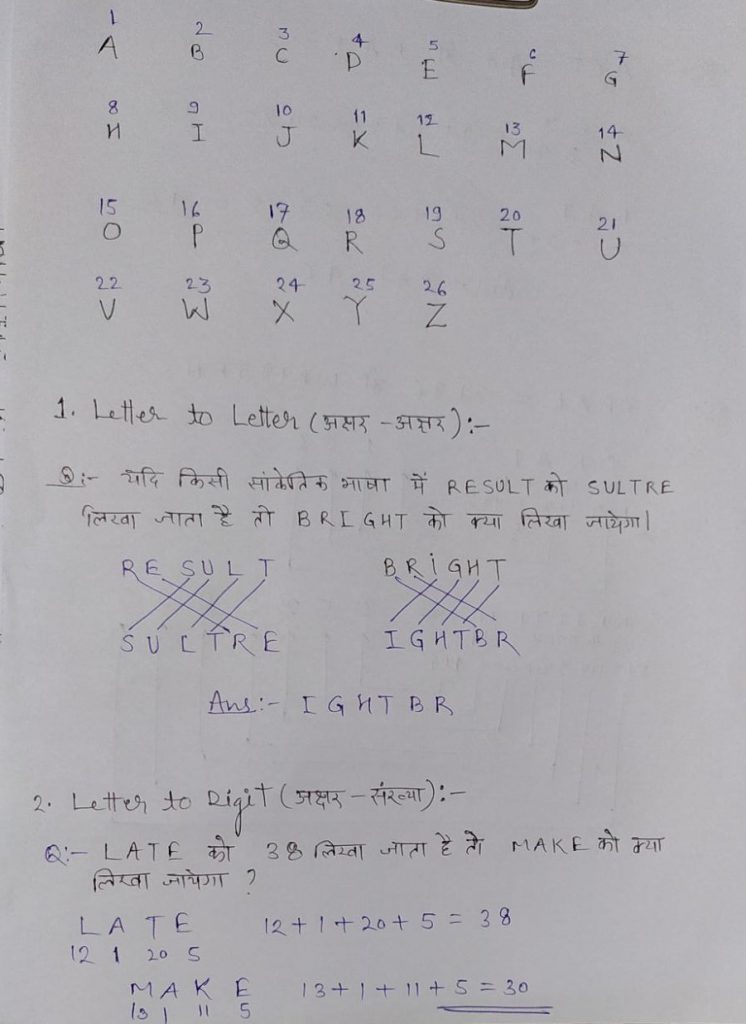 1 2 3 4 5 6 7
A B C D E F G
8 9 10 11 12 13 14
H I J K L M N
15 16 17 18 19 20 21
O P Q R S T U
22 23 24 25 26
V W X Y Z
1. Letter to Letter (अक्षर - अक्षर) :-
Q:- यदि किसी सांकेतिक भाषा में RESULT को SULTRE
लिखा जाता है तो BRIGHT को क्या लिखा जायेगा।
R E S U L T B R I G H T
S U L T R E I G H T B R
Ans:- I G H T B R
2. Letter to Digit (अक्षर - संख्या) :-
Q:- LATE को 38 लिखा जाता है तो MAKE को क्या
लिखा जायेगा ?
L A T E 12 + 1 + 20 + 5 = 38
12 1 20 5
M A K E 13 + 1 + 11 + 5 = 30
13 1 11 5